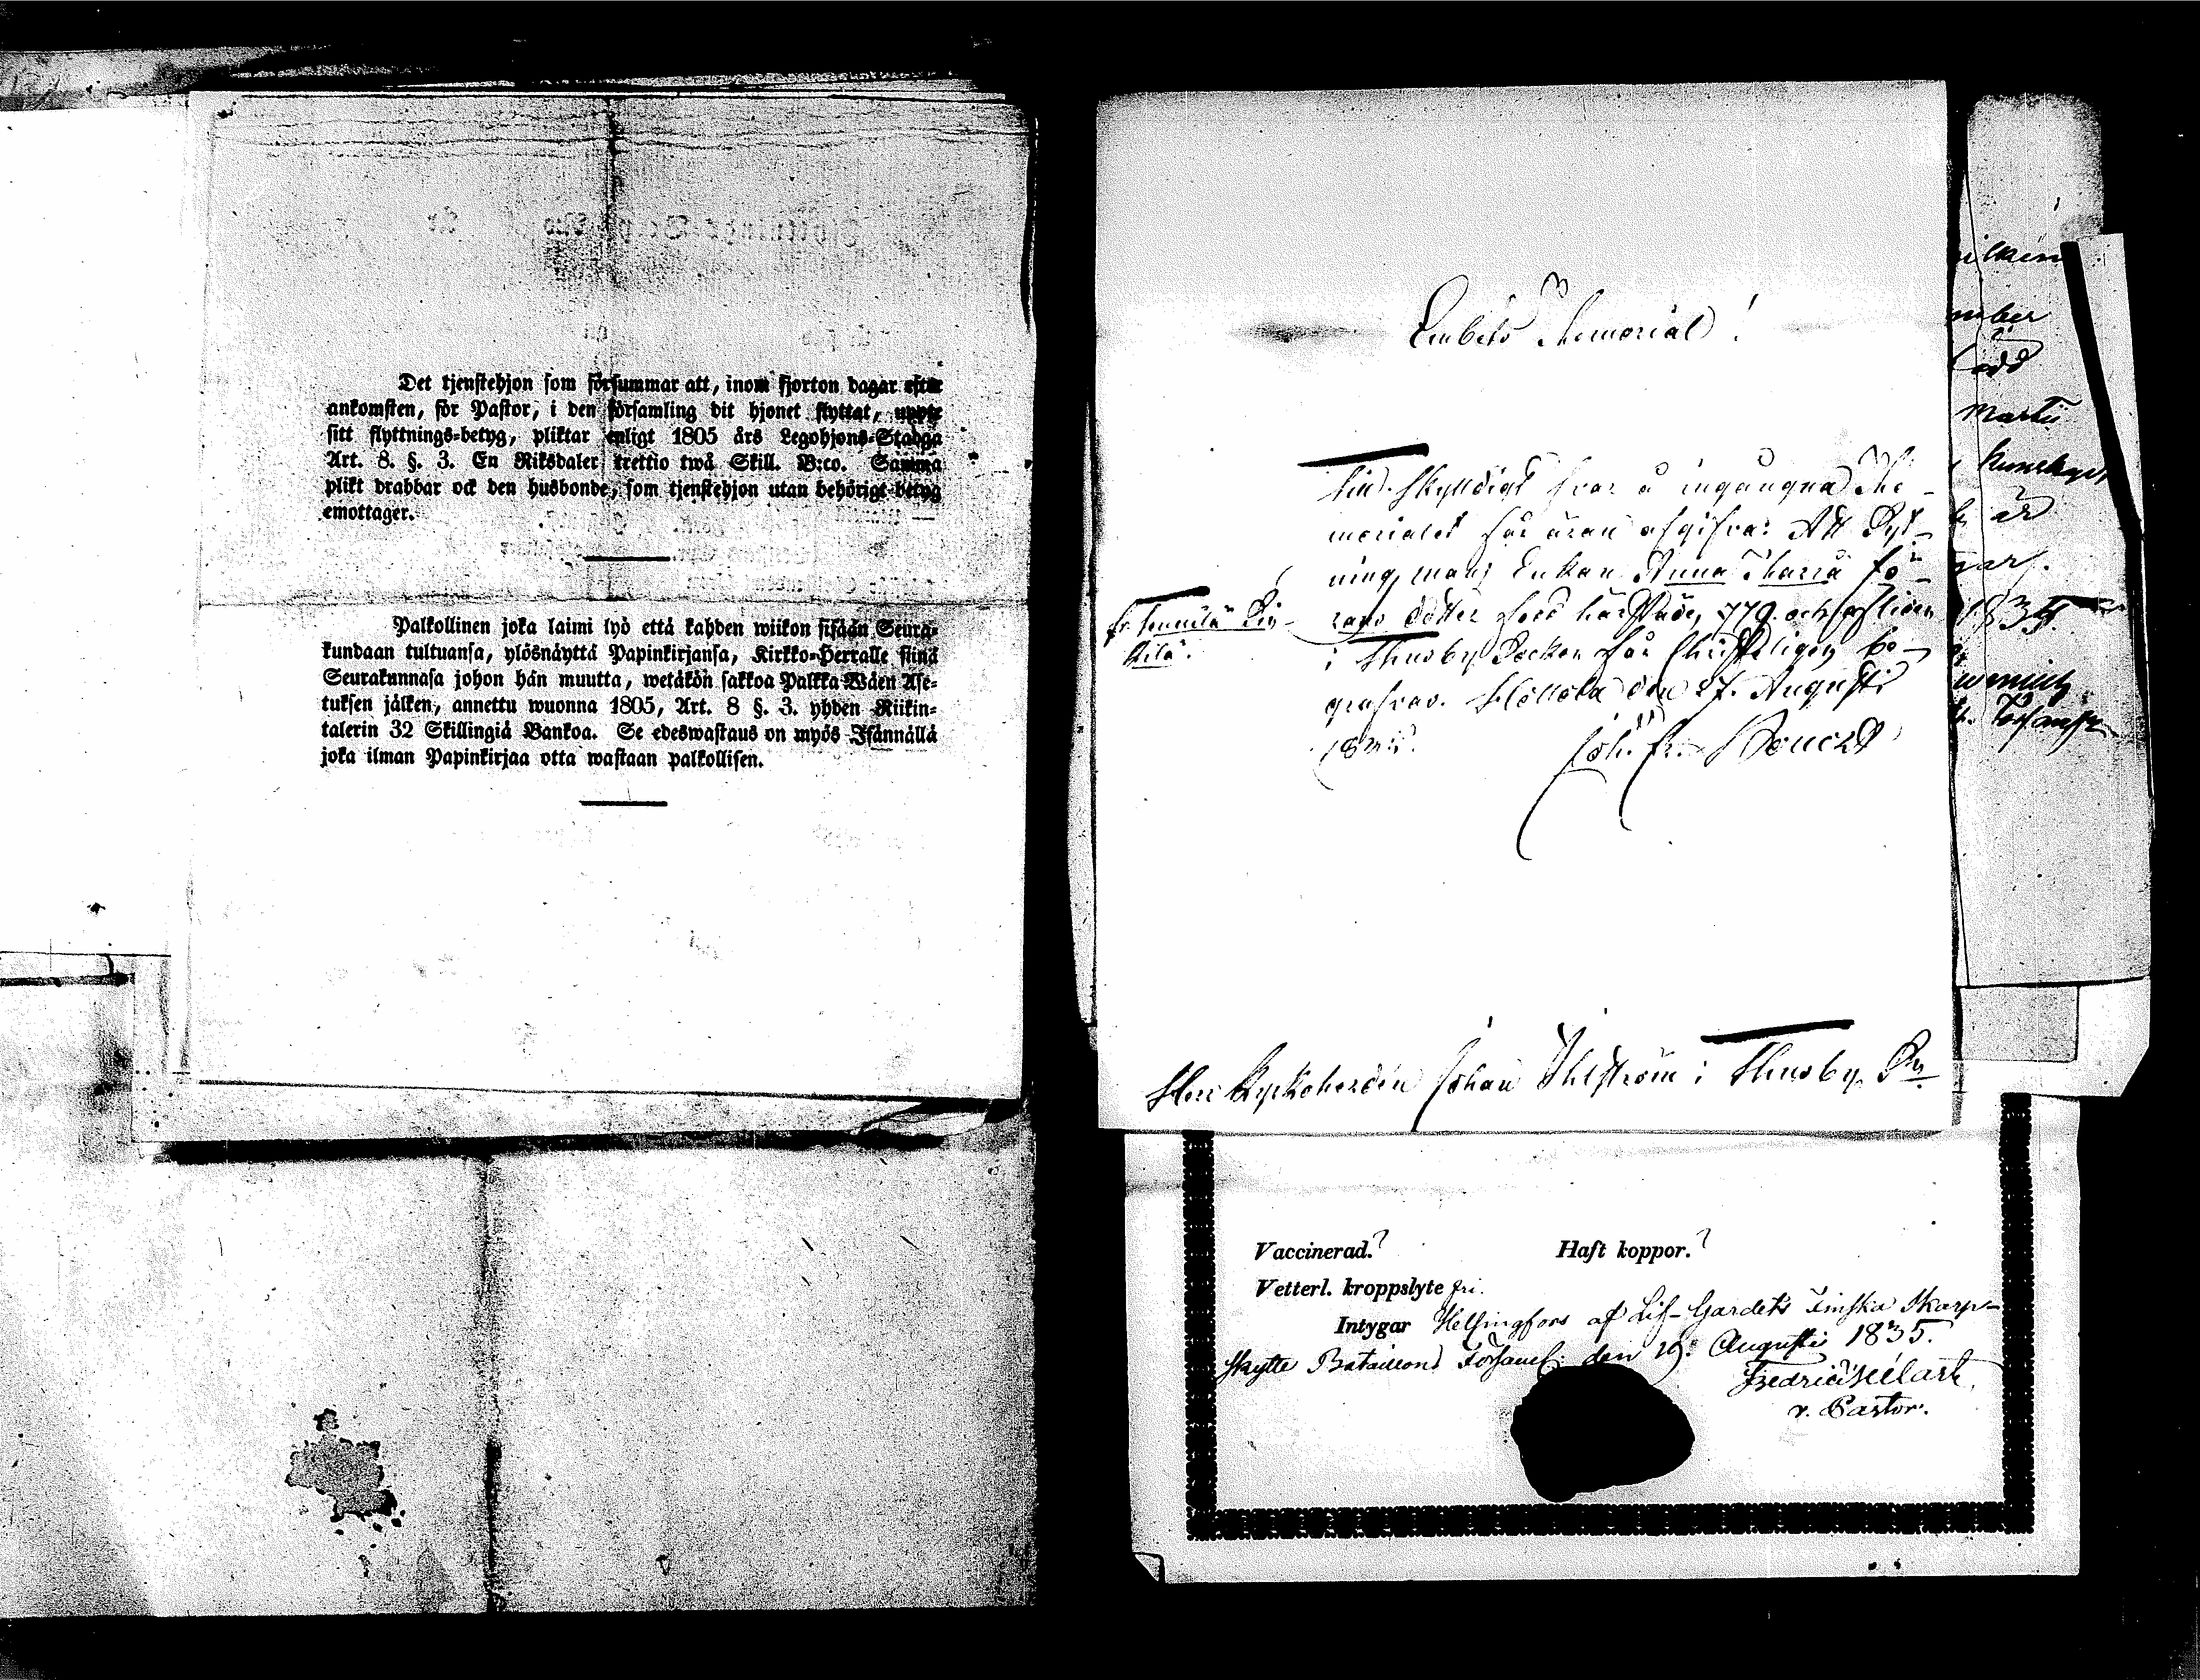 Det tjenstehjon som försummar att, inom fjorton dagar efter
ankomsten, för Pastor, i den församling dit hjonet flyttat, uppte
sitt flyttnings-betyg, pliktar enligt 1805 års Legohjons-Stadga
Art. 8. §. 3. En Riksdaler trettio twå Skill. B:co. Samma
plikt drabbar ock den husbonde, som tjenstehjon utan behörigt betyg
emottager.
Palkollinen joka laimi lyö että kahden wiikon sisään Seura-
kundaan tultuansa, ylösnäyttä Papinkirjansa, Kirkko-Herralle siinä
Seurakunnasa johon hän muutta, wetäkön sakkoa Palkka-Wäen Ase-
tuksen jälken, annettu wuonna 1805, Art. 8 §. 3. yhden Riikin-
talerin 32 Skillingiä Bankoa. Se edeswastaus on myös Isännällä
joka ilman Papinkirjaa otta wastaan palkollisen.
Embets Memorial!
Till Skyldigt svar å ingångna Me-
morialet får äran afgifva: Att Ryt-
Enkan Anna Maria
dotter född härstädes och afliden
i Thusby Socken får Christeligen be-
grafvas. Hollola den 27. Augusti
1835. Joh. Fr. Boucht
Herr Kyrkoherden Johan Ahlström i Thusby Sn
ilken
mber
född
Martii
är
1835
Vaccinerad.? Haft koppor.?
Vetterl. kroppslyte fri.
Intygar Helsingfors af Lif-Gardets Finska Skarp-
skytte Bataillons Församl: den 19: Augusti 1835.
Fredric
v. Pastor.